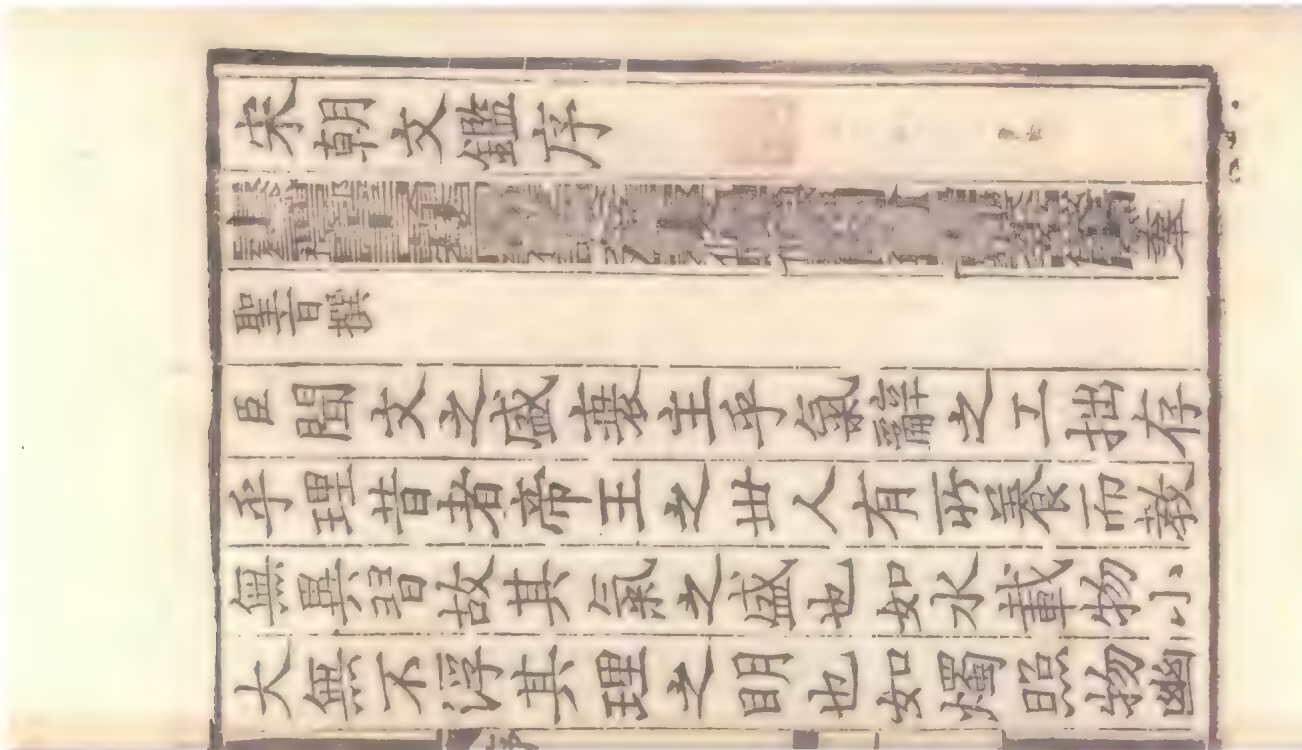 宋朝文鑑序
奉
聖旨撰
臣聞文之盛衰主乎氣辭之工拙存
乎理昔者帝王之世人有所養而教
無異習故其氣之盛也如水載物小
大無不浮其理之明也如燭照物幽
序